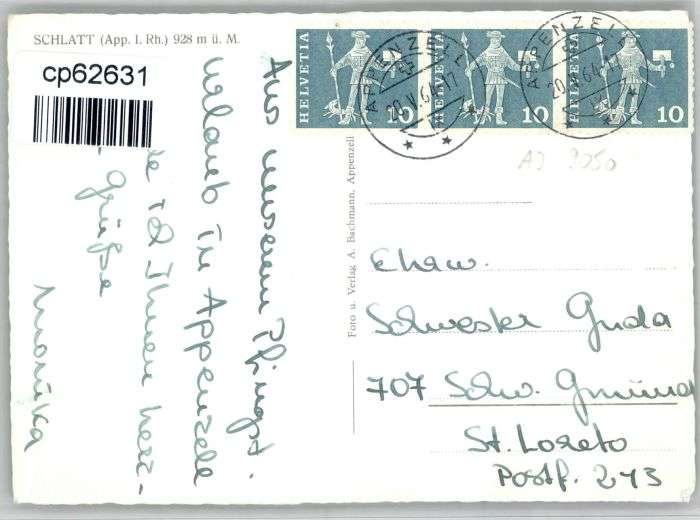 SCHLATT (App. I. Rh.) 928 m ü. M.
cp62631
Aus unserem Pfingst-
urlaub in Appenzell
Ihnen herz-
Grüße
Monika
Foto u. Verlag A. Bachmann, Appenzell
HELVETIA 10
HELVETIA 10
HELVETIA 10
APPENZELL
20.V.64-17
APPENZELL
20.V.64-17
AJ 9050
Ehrw.
Schwester Guda
707 Schw. Gmünd
St. Loreto
Postf. 243